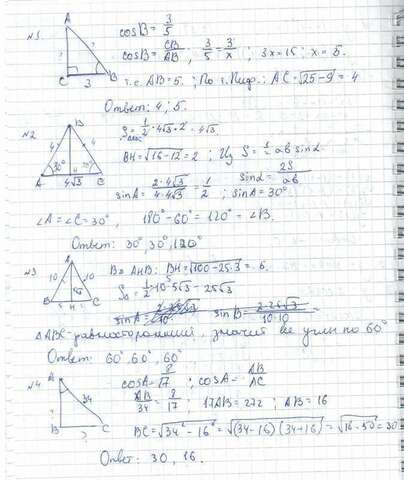 №1
A
C
B
3
?
?
cosB = 3/5
cosB = CB/AB, 3/5 = 3/x; 3x=15; x=5.
т.е. AB=5. ; По т. Пиф.: AC = √25-9 = 4
Ответ: 4; 5.
№2
B
4
4
30°
A
H
C
4√3
S = 1/2 · 4√3 · 2 = 4√3
BH = √16-12 = 2; Из S = 1/2 ab sinα
sinα = 2S/ab
sinA = 2·4√3/4·4√3 = 1/2; sinA = 30°
∠A = ∠C = 30°, 180°-60° = 120° = ∠B.
Ответ: 30°, 30°, 120°
№3
B
10
10
A
H
C
В △ AHB: BH = √100-25·3 = 5.
S = 1/2 · 10 · 5√3 = 25√3
sinB = 2·25√3/10·10
△ABC - равносторонний, значит все углы по 60°
Ответ: 60°, 60°, 60°
№4
A
34
B
C
?
cosA = 8/17; cosA = AB/AC
AB/34 = 8/17; 17AB = 272; AB = 16
BC = √34² - 16² = √(34-16)(34+16) = √18·50 = 30
Ответ: 30, 16.